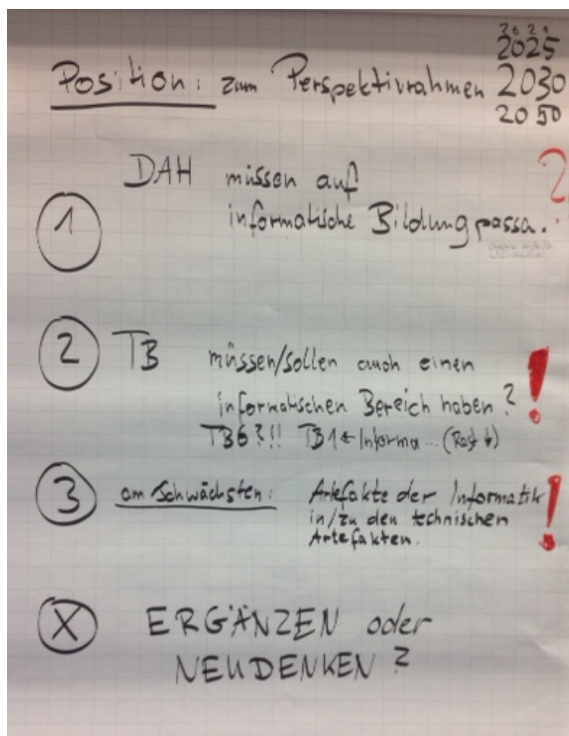 2020
2025
Position: zum Perspektivrahmen 2030
2050
DAH müssen auf ?
① informatische Bildung passa.
② TB müssen/sollen auch einen !
informatischen Bereich haben?
TB6?!! TB1 ← Informa... (Rest ↓)
③ am Schwächsten: Artefakte der Informatik !
in/zu den technischen
Artefakten.
Ⓧ ERGÄNZEN oder
NEUDENKEN?